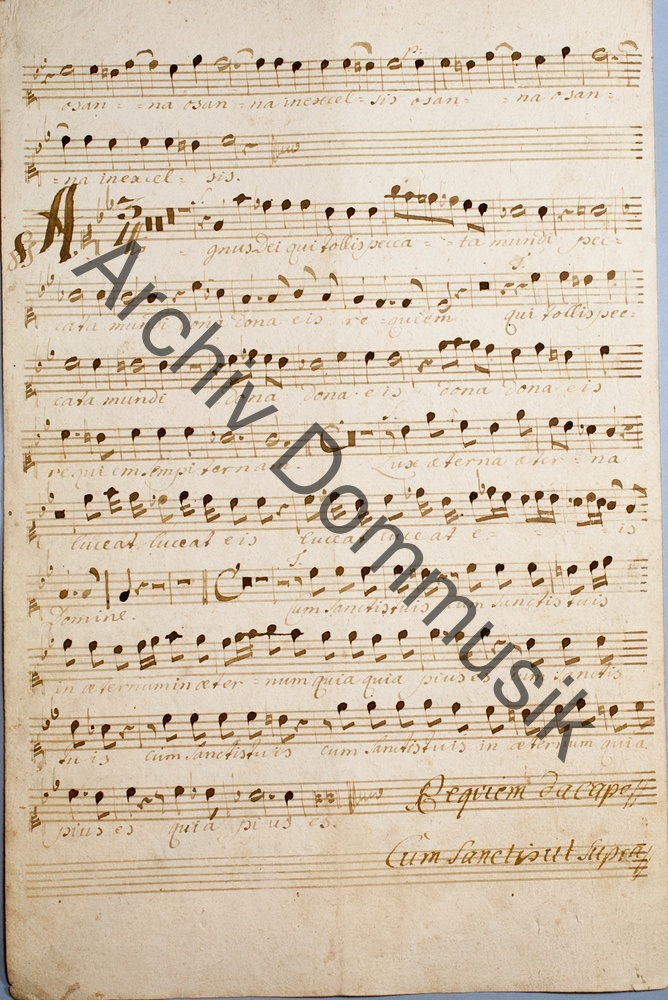 osan - - na osan - - na in excel - sis osan - - na osan -
- na in excel - sis.
A - gnus Dei qui tollis pecca - - ta mundi pec -
cata mundi dona dona eis re - quiem qui tollis pec -
cata mundi dona dona eis dona dona eis
requiem sempiternam. Lux æterna æter - na
luceat luceat eis luceat luceat e - - - is
Domine. Cum Sanctis tuis cum Sanctis tuis
in æternum in æter - num quia quia pius es cum Sanctis
tuis cum Sanctis tuis cum Sanctis tuis in æternum quia
pius es quia pius es.
Requiem da capo
Cum Sanctis ut Supra
Archiv Dommusik